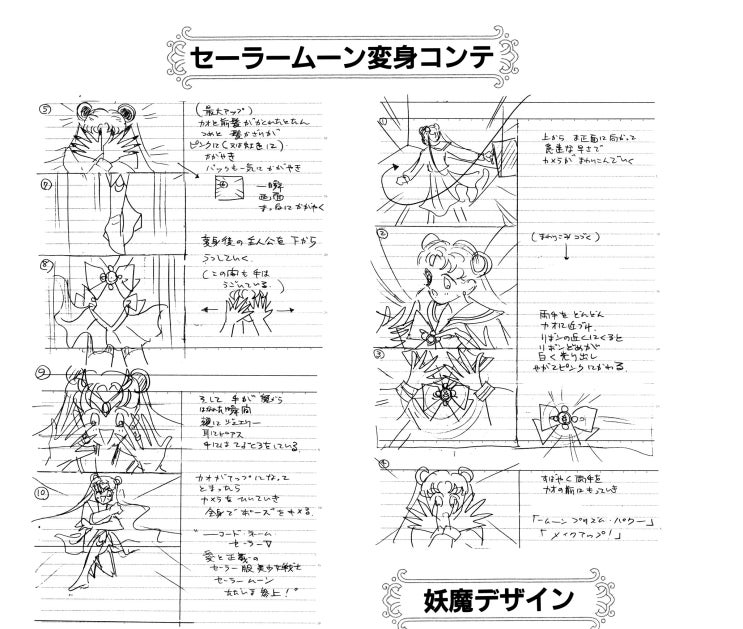 セーラームーン変身コンテ
①
上から ま正面に向かって
急速な早さで
カメラが まわりこんでいく
②
(まわりこみつづく)
両手を どんどん
カオに近づけ
リボンの近くにくると
リボンどめが
白く光り出し
やがてピンクにかわる。
③
④
すばやく両手を
カオの前にもっていき
「ムーン プリズム・パワー」
「メイクアップ!」
⑤
(最大アップ)
カオと前髪がかくれたとたん
つめと 髪かざりが
ピンクに(又は虹色に)
かがやき
バックも一気にかがやき
一瞬
画面
まっ白にかがやく
⑦
変身後の主人公を 下から
うつしていく。
⑧
(この間も手は
うごいている。)
⑨
そして 手が 顔から
はなれた瞬間
額に ジュエリー
耳にピアス
手には てぶくろをしている。
⑩
カオがアップになって
とまったら
カメラを ひいていき
全身で ポーズをキメる。
"――コード・ネーム
セーラーV
愛と正義の
セーラー服美少女戦士
セーラームーン
ただいま参上!"
妖魔デザイン